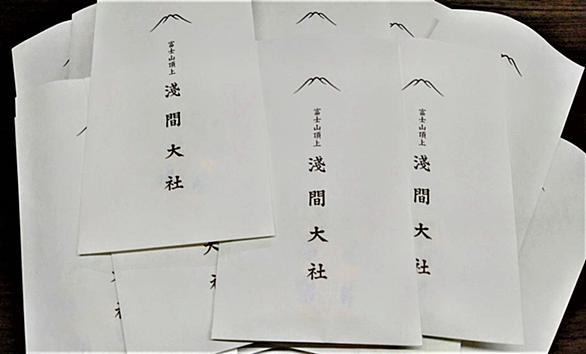 富士山頂上
淺間大社
富士山頂上
淺間大社
富士山頂上
淺間大社